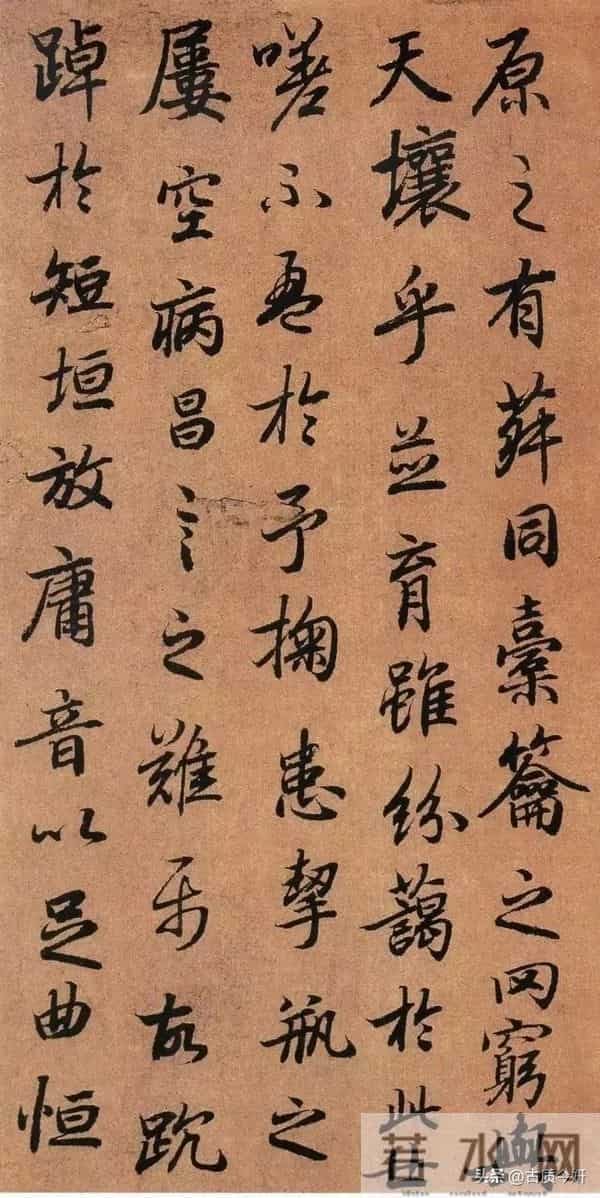 原之有菽同橐籥之罔窮與
天壤乎並育雖紛藹於此世
嗟不盈於予掬患挈瓶之
屢空病昌言之難屬故踸
踔於短垣放庸音以足曲恒
头条 @古质今妍